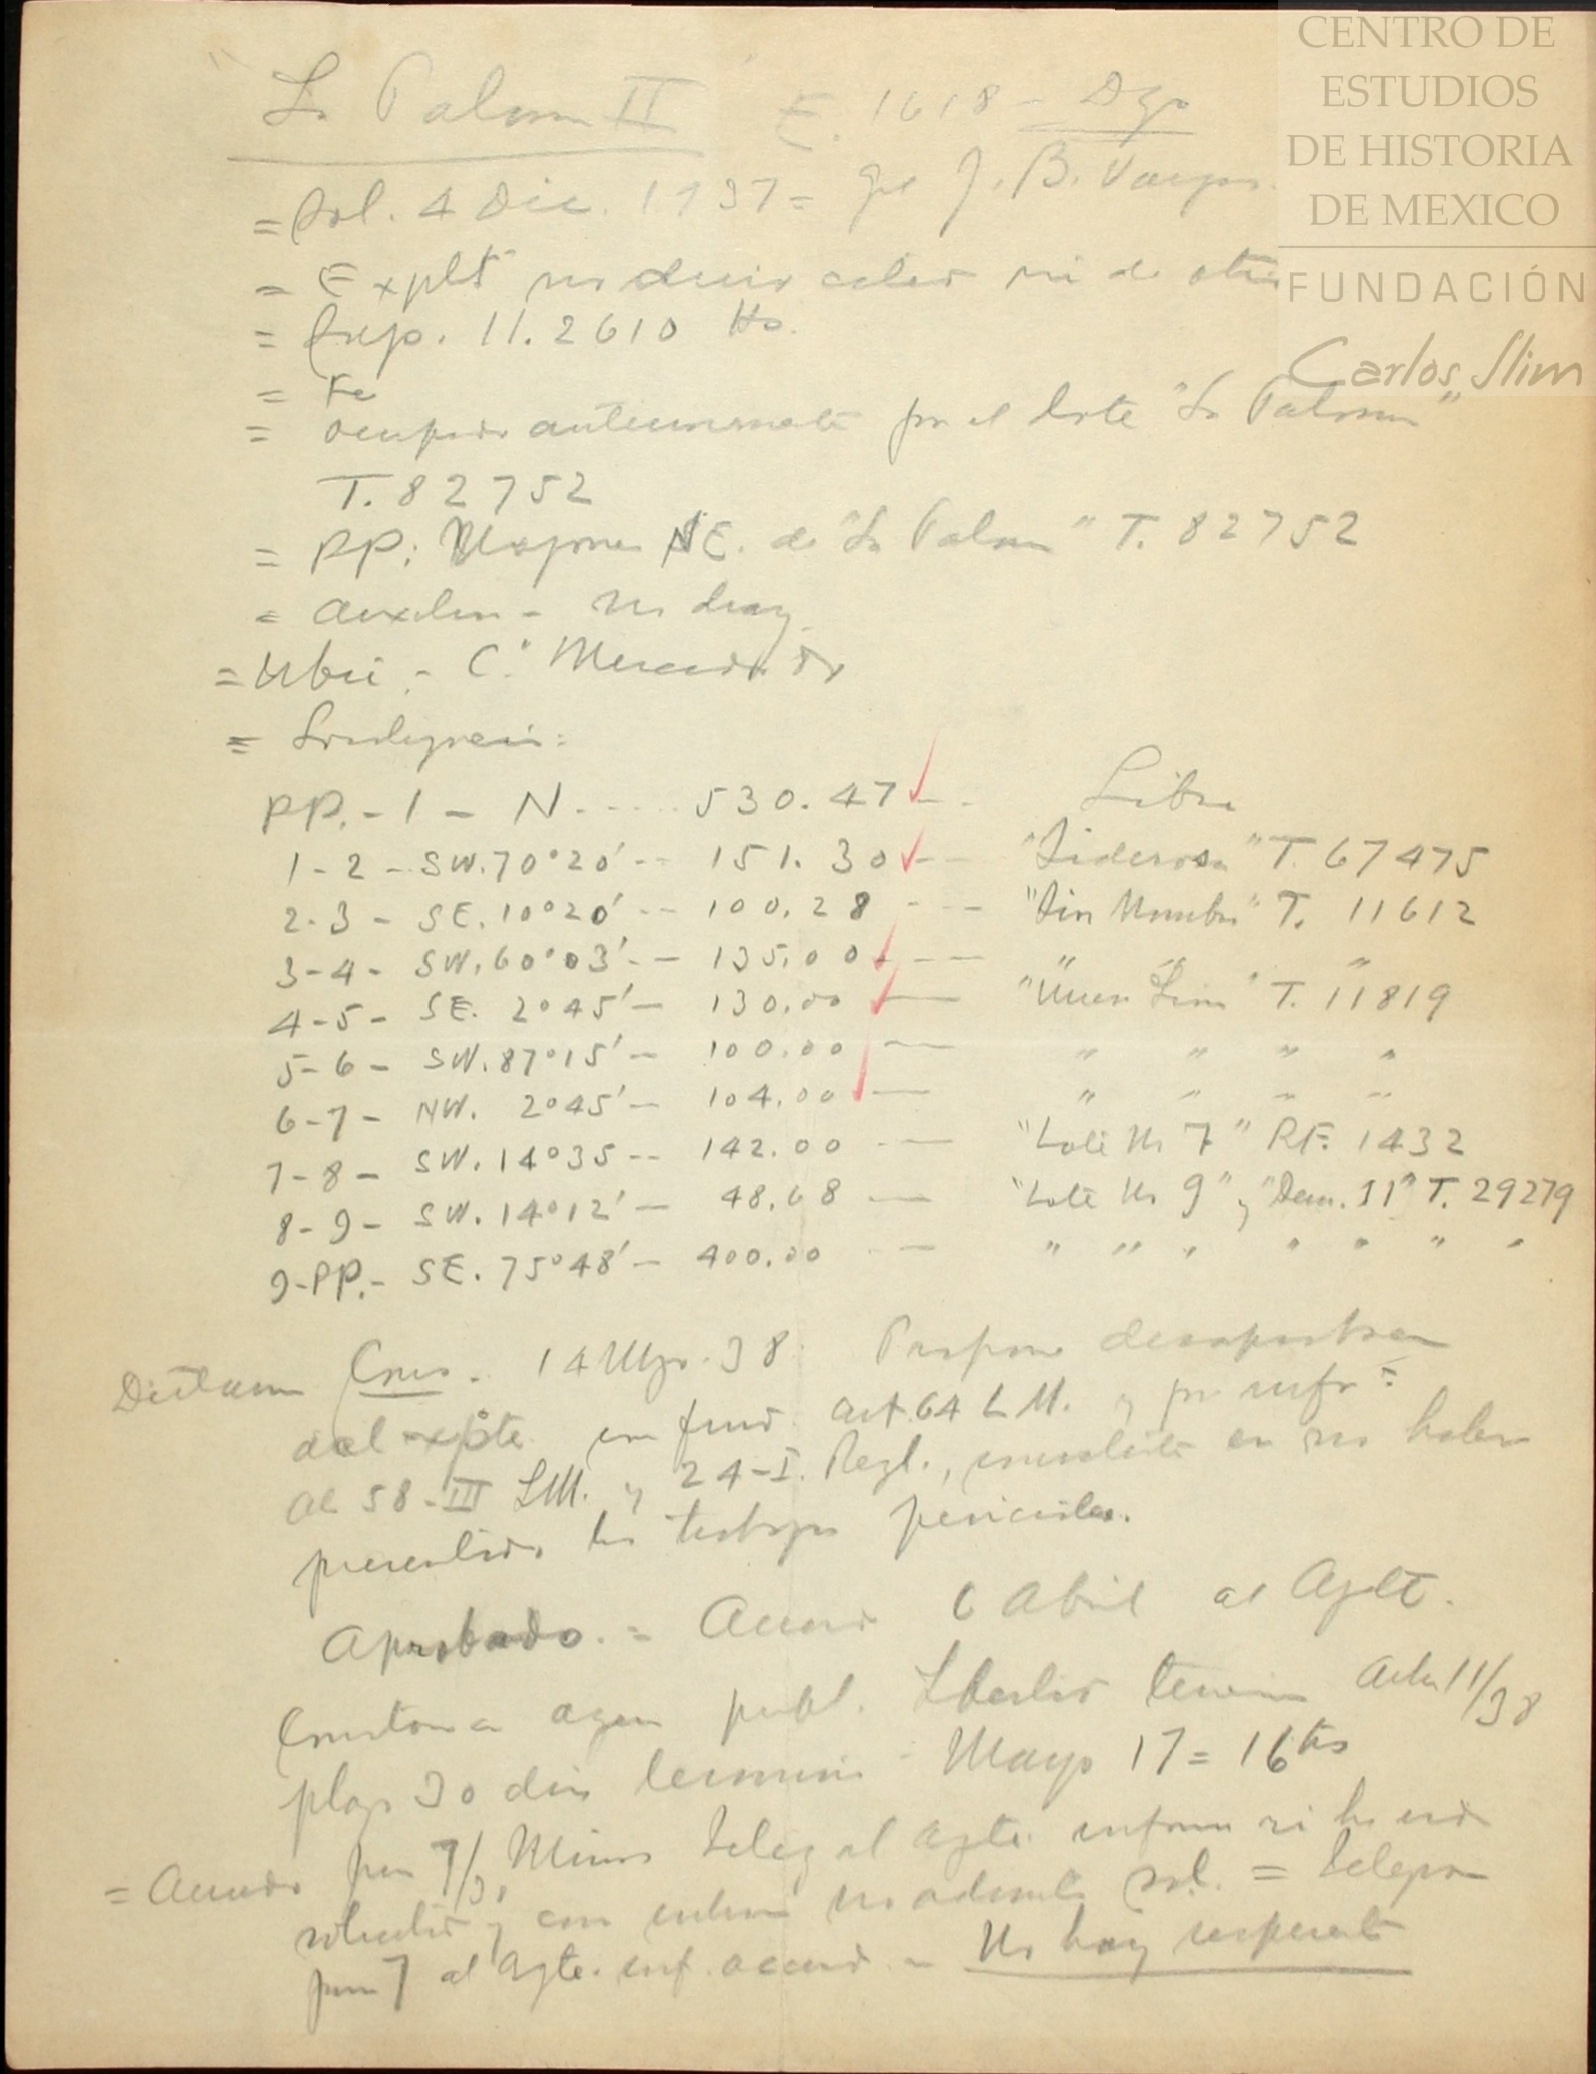 CENTRO DE
ESTUDIOS
DE HISTORIA
DE MEXICO
FUNDACIÓN
Carlos Slim
"La Paloma II" E. 1618 - Dgo
= Sol. 4 Dic. 1937 = Gral J. B. Vargas
= Explt no
= Sup. 11.2610 Hs.
= Fe
= ocupado anteriormente por el lote "La Paloma"
T. 82752
= PP: Mojonera NE. de "La Paloma" T. 82752
= Auxiliar - No hay
= Ubic. - C° Mercado
=
PP. - 1 - N ---- 530.47 -- Libre
1-2 - SW. 70°20' -- 151.30 -- "Siderosa" T. 67475
2-3 - SE. 10°20' -- 100.28 --- "Sin Nombre" T. 11612
3-4 - SW. 60°03' -- 135.00 -- " "
4-5 - SE. 2°45' - 130.00 — " T. 11819
5-6 - SW. 87°15' - 100.00 — " " " "
6-7 - NW. 2°45' - 104.00 — " " " "
7-8 - SW. 14°35 -- 142.00 — "Lote No 7" RF. 1432
8-9 - SW. 14°12' - 48.68 — "Lote No 9" y "Dem. 11" T. 29279
9-PP. - SE. 75°48' - 400.00 — " " " " " " "
Dictamen Cons. 14 Mzo. 38 Propone desaprobar
el expte. con fund. art. 64 L.M. y por infr=
al 58-III L.M. y 24-I. Regl., consistente en no haber
presentado los trabajos periciales.
Aprobado. = Acuerdo 6 Abril al Agte.
agen publ. Libertad terreno Acta 11/38
plazo 30 días termina Mayo 17 = 16 hs
= Acuerdo jun 7/38 Minas al Agte. informe si ha sido
solicitado y caso no admita sol. = Telegrama
jun 7 al Agte. inf. acuerdo. - No hay respuesta